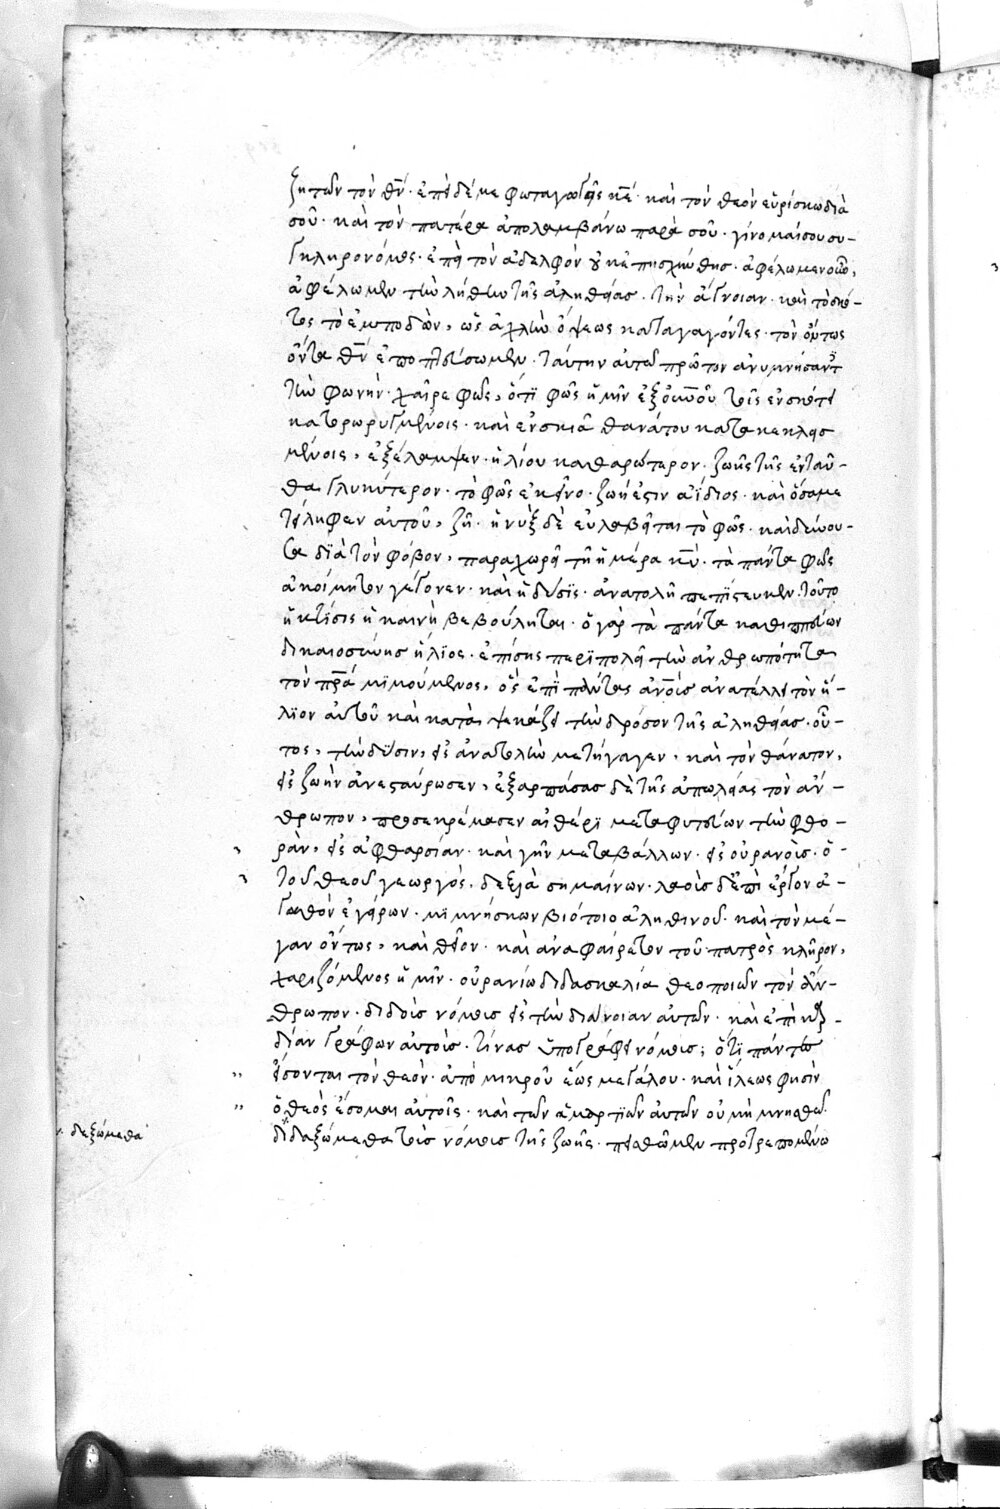 ζητῶν τὸν θν̅· ἐπεὶ δέ με φωταγωγεῖς κε̅· καὶ τὸν θεὸν εὑρίσκω διὰ
σοῦ· καὶ τὸν πατέρα ἀπολαμβάνω παρὰ σοῦ· γίνομαί σου συ-
γκληρονόμος· ἐπεὶ τὸν ἀδελφὸν οὐκ ἐπησχύνθης· ἀφέλωμεν οὖν,
ἀφέλωμεν τὴν λήθην τῆς ἀληθείας· τὴν ἄγνοιαν· καὶ τὸ σκό-
τος τὸ ἐμποδὼν, ὡς ἀχλὺν ὄψεως καταγαγόντες· τὸν ὄντως
ὄντα θν̅ ἐποπτεύσωμεν· ταύτην αὐτῷ πρῶτον ἀνυμνήσαντες
τὴν φωνήν· χαῖρε φῶς, ὅτι φῶς ἡμῖν ἐξ οὐνοῦ τοῖς ἐν σκότει
κατορωρυγμένοις· καὶ ἐν σκιᾷ θανάτου κατακεκλεισ
μένοις, ἐξέλαμψεν· ἡλίου καθαρώτερον· ζωῆς τῆς ἐνταῦ-
θα γλυκύτερον· τὸ φῶς ἐκεῖνο· ζωή ἐστιν ἀΐδιος· καὶ ὅσα με
τείληφεν αὐτοῦ, ζῇ· ἡ νὺξ δὲ εὐλαβεῖται τὸ φῶς· καὶ δύνου-
σα διὰ τὸν φόβον, παραχωρεῖ τῇ ἡμέρα κυ̅· τὰ πάντα φῶς
ἀκοίμητον γέγονεν· καὶ ἡ δύσις· ἀνατολῇ πεπίστευκεν· τοῦτο
ἡ κτίσις ἡ καινὴ βεβούληται· ὁ γὰρ τὰ πάντα καθιππεύων
δικαιοσύνης ἥλιος· ἐπίσης περιπολεῖ τὴν ἀνθρωπότητα
τὸν πρ̅α μιμούμενος, ὃς ἐπὶ πάντας ἀνο̅ις ἀνατέλλει τὸν ἥ-
λιον αὐτοῦ καὶ καταψεκάζει τὴν δρόσον τῆς ἀληθείας· οὗ-
τος, τὴν δύσιν, εἰς ἀνατολὴν μετήγαγεν, καὶ τὸν θάνατον,
εἰς ζωὴν ἀνεσταύρωσεν, ἐξαρπάσας δὲ τῆς ἀπωλείας τὸν ἄν-
θρωπον, προσεκρέμασεν αἰθέρι μεταφυτεύων τὴν φθο-
ρὰν, εἰς ἀφθαρσίαν· καὶ γῆν μεταβάλλων· εἰς οὐρανοὺς· ὁ
τοῦ θεοῦ γεωργός· δεξιὰ σημαίνων· λαοὺς δ' ἐπὶ ἔργον ἀ-
γαθὸν ἐγείρων· μιμνήσκων βιότοιο ἀληθινοῦ· καὶ τὸν μέ-
γαν ὄντως, καὶ θεῖον· καὶ ἀναφαίρετον τοῦ πατρὸς κλῆρον,
χαριζόμενος ἡμῖν· οὐρανίῳ διδασκαλία θεοποιῶν τὸν ἄν-
θρωπον· διδοὺς νόμους εἰς τὴν διάνοιαν αὐτῶν· καὶ ἐπὶ καρ-
δίαν γράφων αὐτοὺς· τίνας ὑπογράφει νόμους; ὅτι πάντες
εἴσονται τὸν θεὸν· ἀπὸ μικροῦ ἕως μεγάλου· καὶ ἵλεως φησὶν
ὁ θεὸς ἔσομαι αὐτοῖς· καὶ τῶν ἁμαρτιῶν αὐτῶν οὐ μὴ μνησθῶ·
διδαξώμεθα τοὺς νόμους τῆς ζωῆς· πεισθῶμεν προτρεπομένῳ
δεξώμεθα